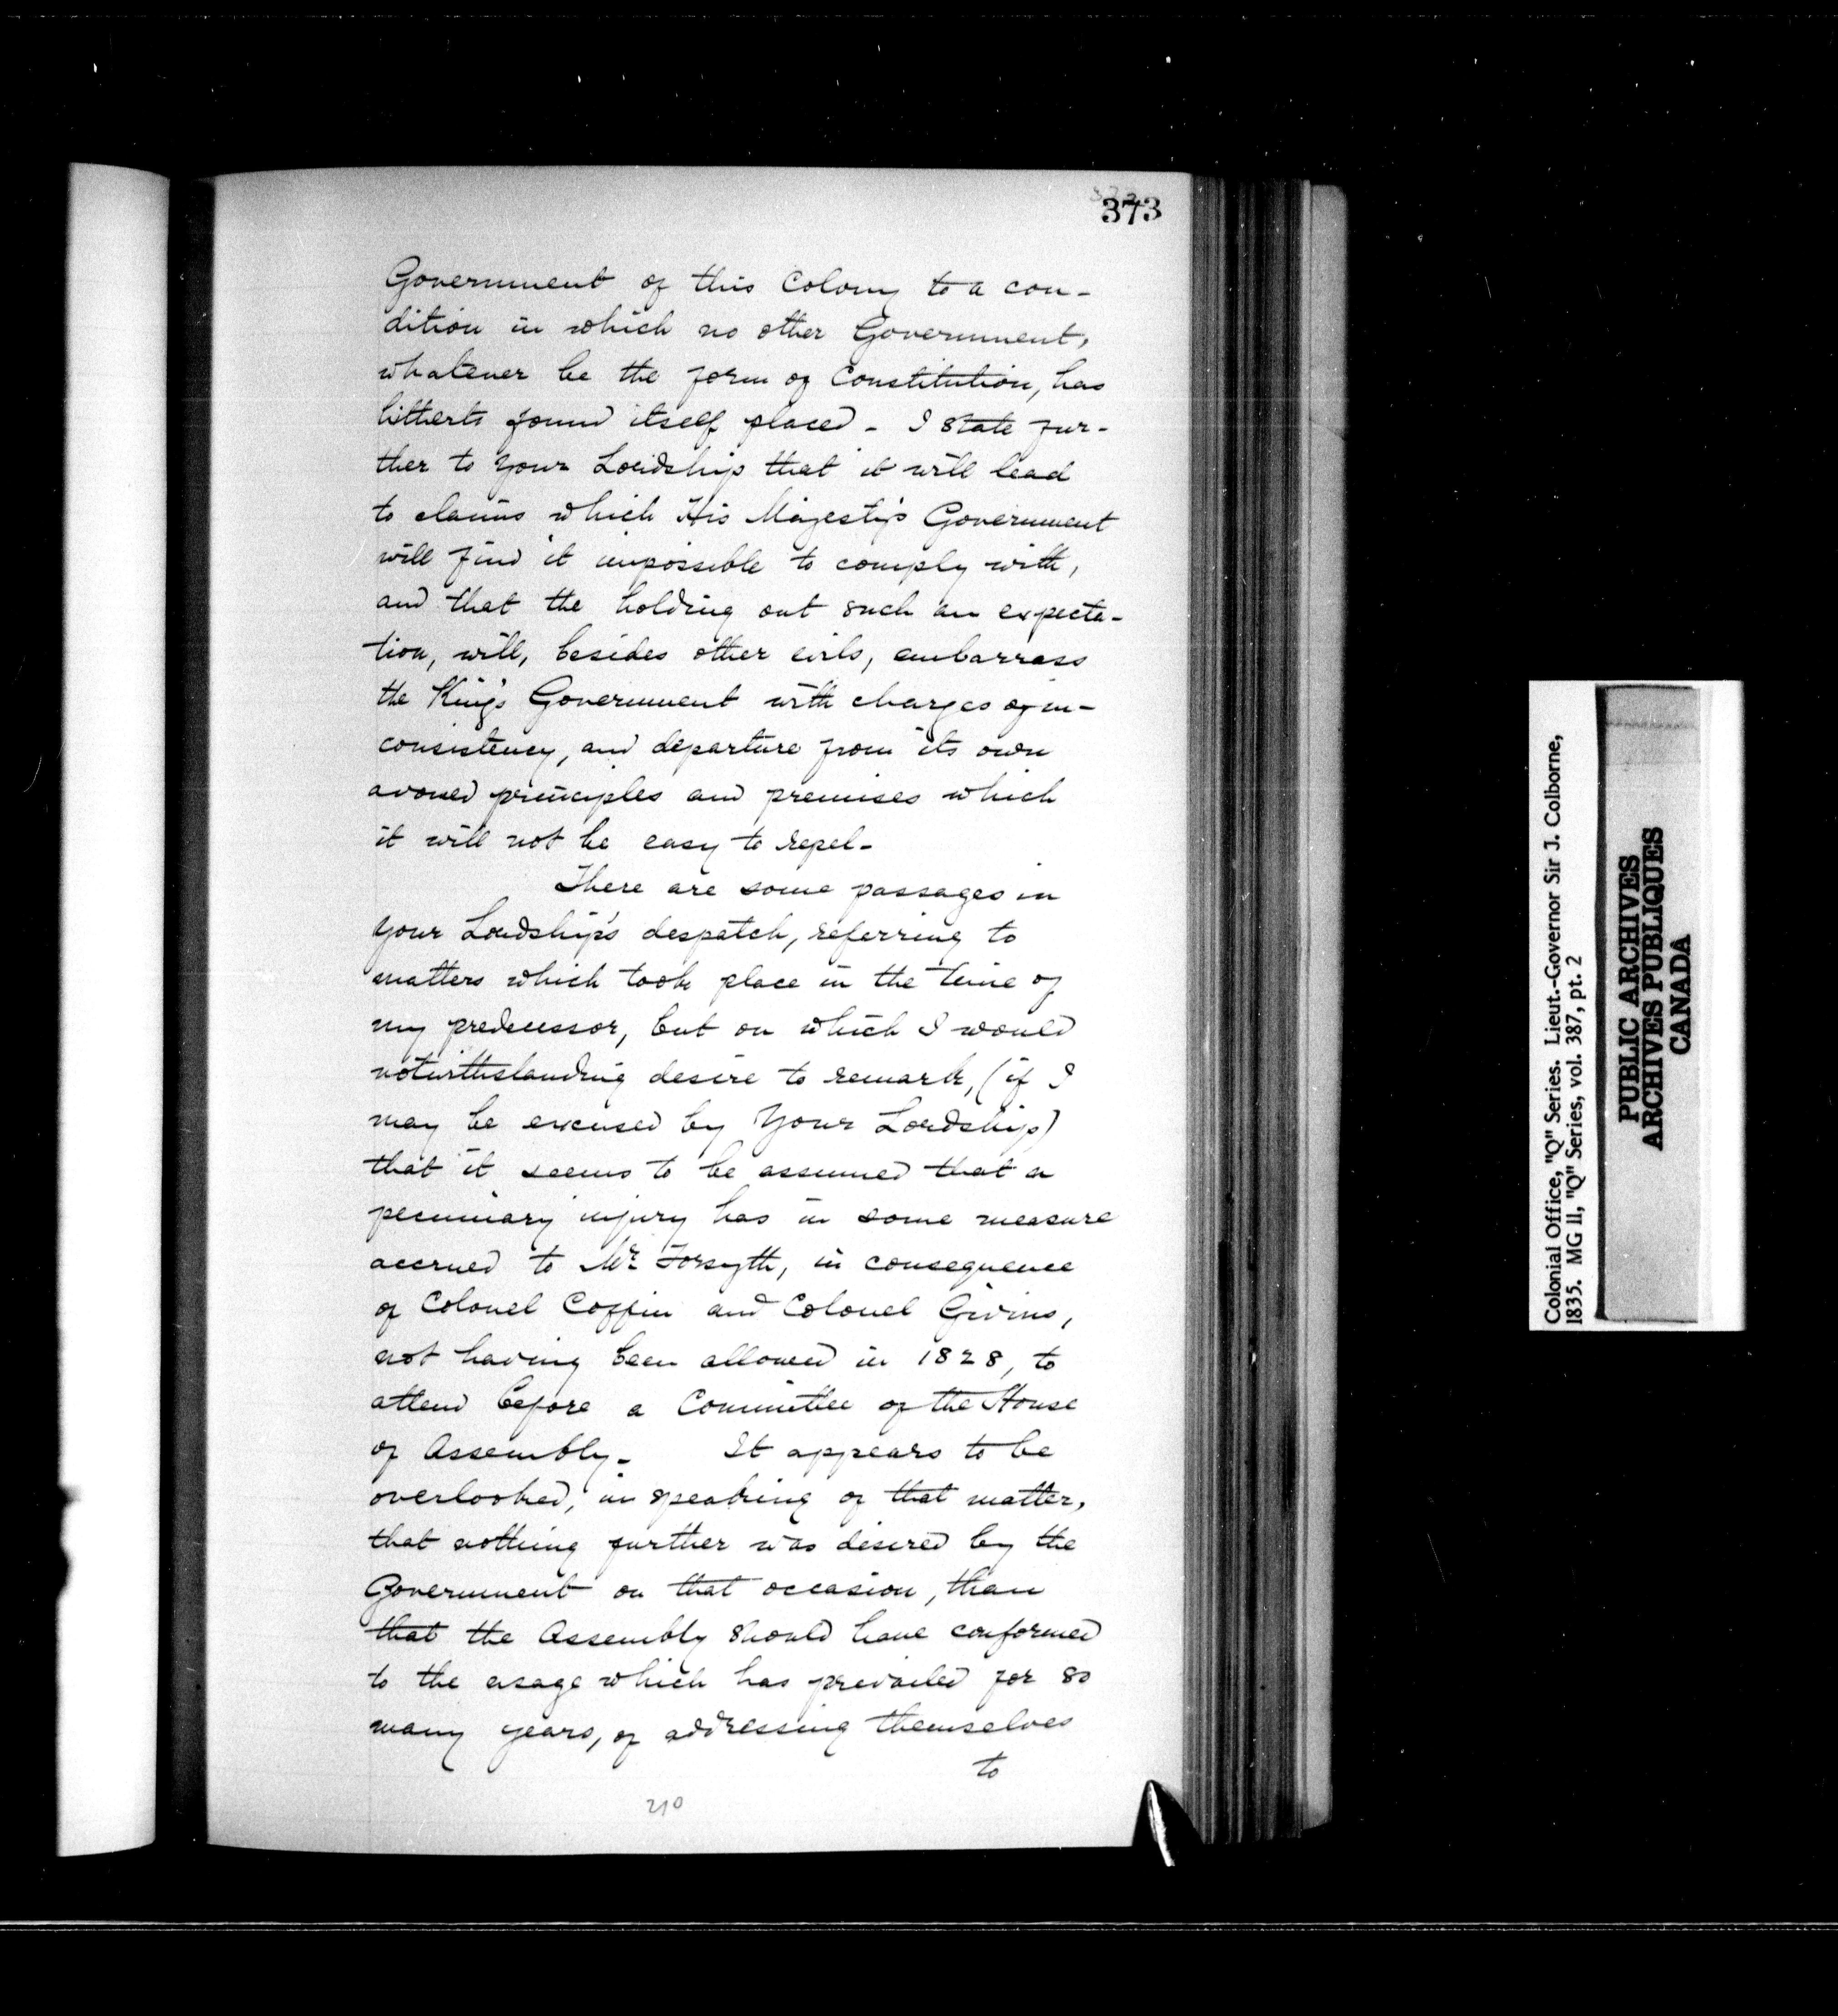 373
Government of this Colony to a con-
dition in which no other Government,
whatever be the form of Constitution, has
hitherto found itself placed - I state fur-
ther to Your Lordship that it will lead
to claims which His Majesty's Government
will find it impossible to comply with,
and that the holding out such an expecta-
tion, will, besides other evils, embarrass
the King's Government with charges of in-
consistency, and departure from its own
avowed principles and premises which
it will not be easy to repel -
There are some passages in
Your Lordship's despatch, referring to
matters which took place in the time of
my predecessor, but on which I would
notwithstanding desire to remark, (if I
may be excused by Your Lordship)
that it seems to be assumed that a
pecuniary injury has in some measure
accrued to Mr Forsyth, in consequence
of Colonel Coffin and Colonel Givins,
not having been allowed in 1828, to
attend before a Committee of the House
of Assembly - It appears to be
overlooked, in speaking of that matter,
that nothing further was desired by the
Government on that occasion, than
that the Assembly should have conformed
to the usage which has prevailed for so
many years, of addressing themselves
to
210
Colonial Office, "Q" Series. Lieut.-Governor Sir J. Colborne,
1835. MG 11, "Q" Series, vol. 387, pt. 2
PUBLIC ARCHIVES
ARCHIVES PUBLIQUES
CANADA